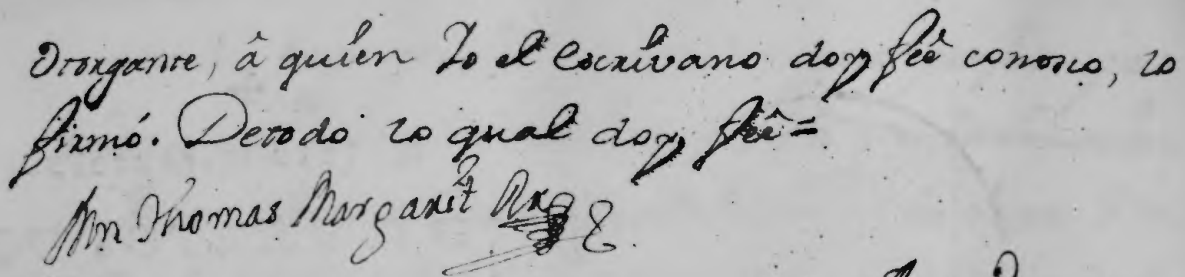 Otorgante, â quien Yo el Escrivano doy feê conosco, lo
firmó. De todo lo qual doy feê=
Mn Thomas Margarit